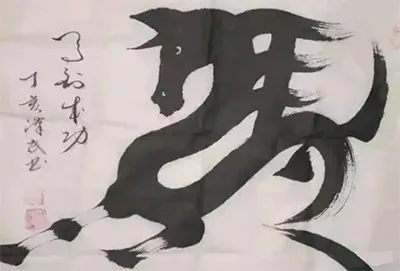 馬
马到成功
丁亥泽民书